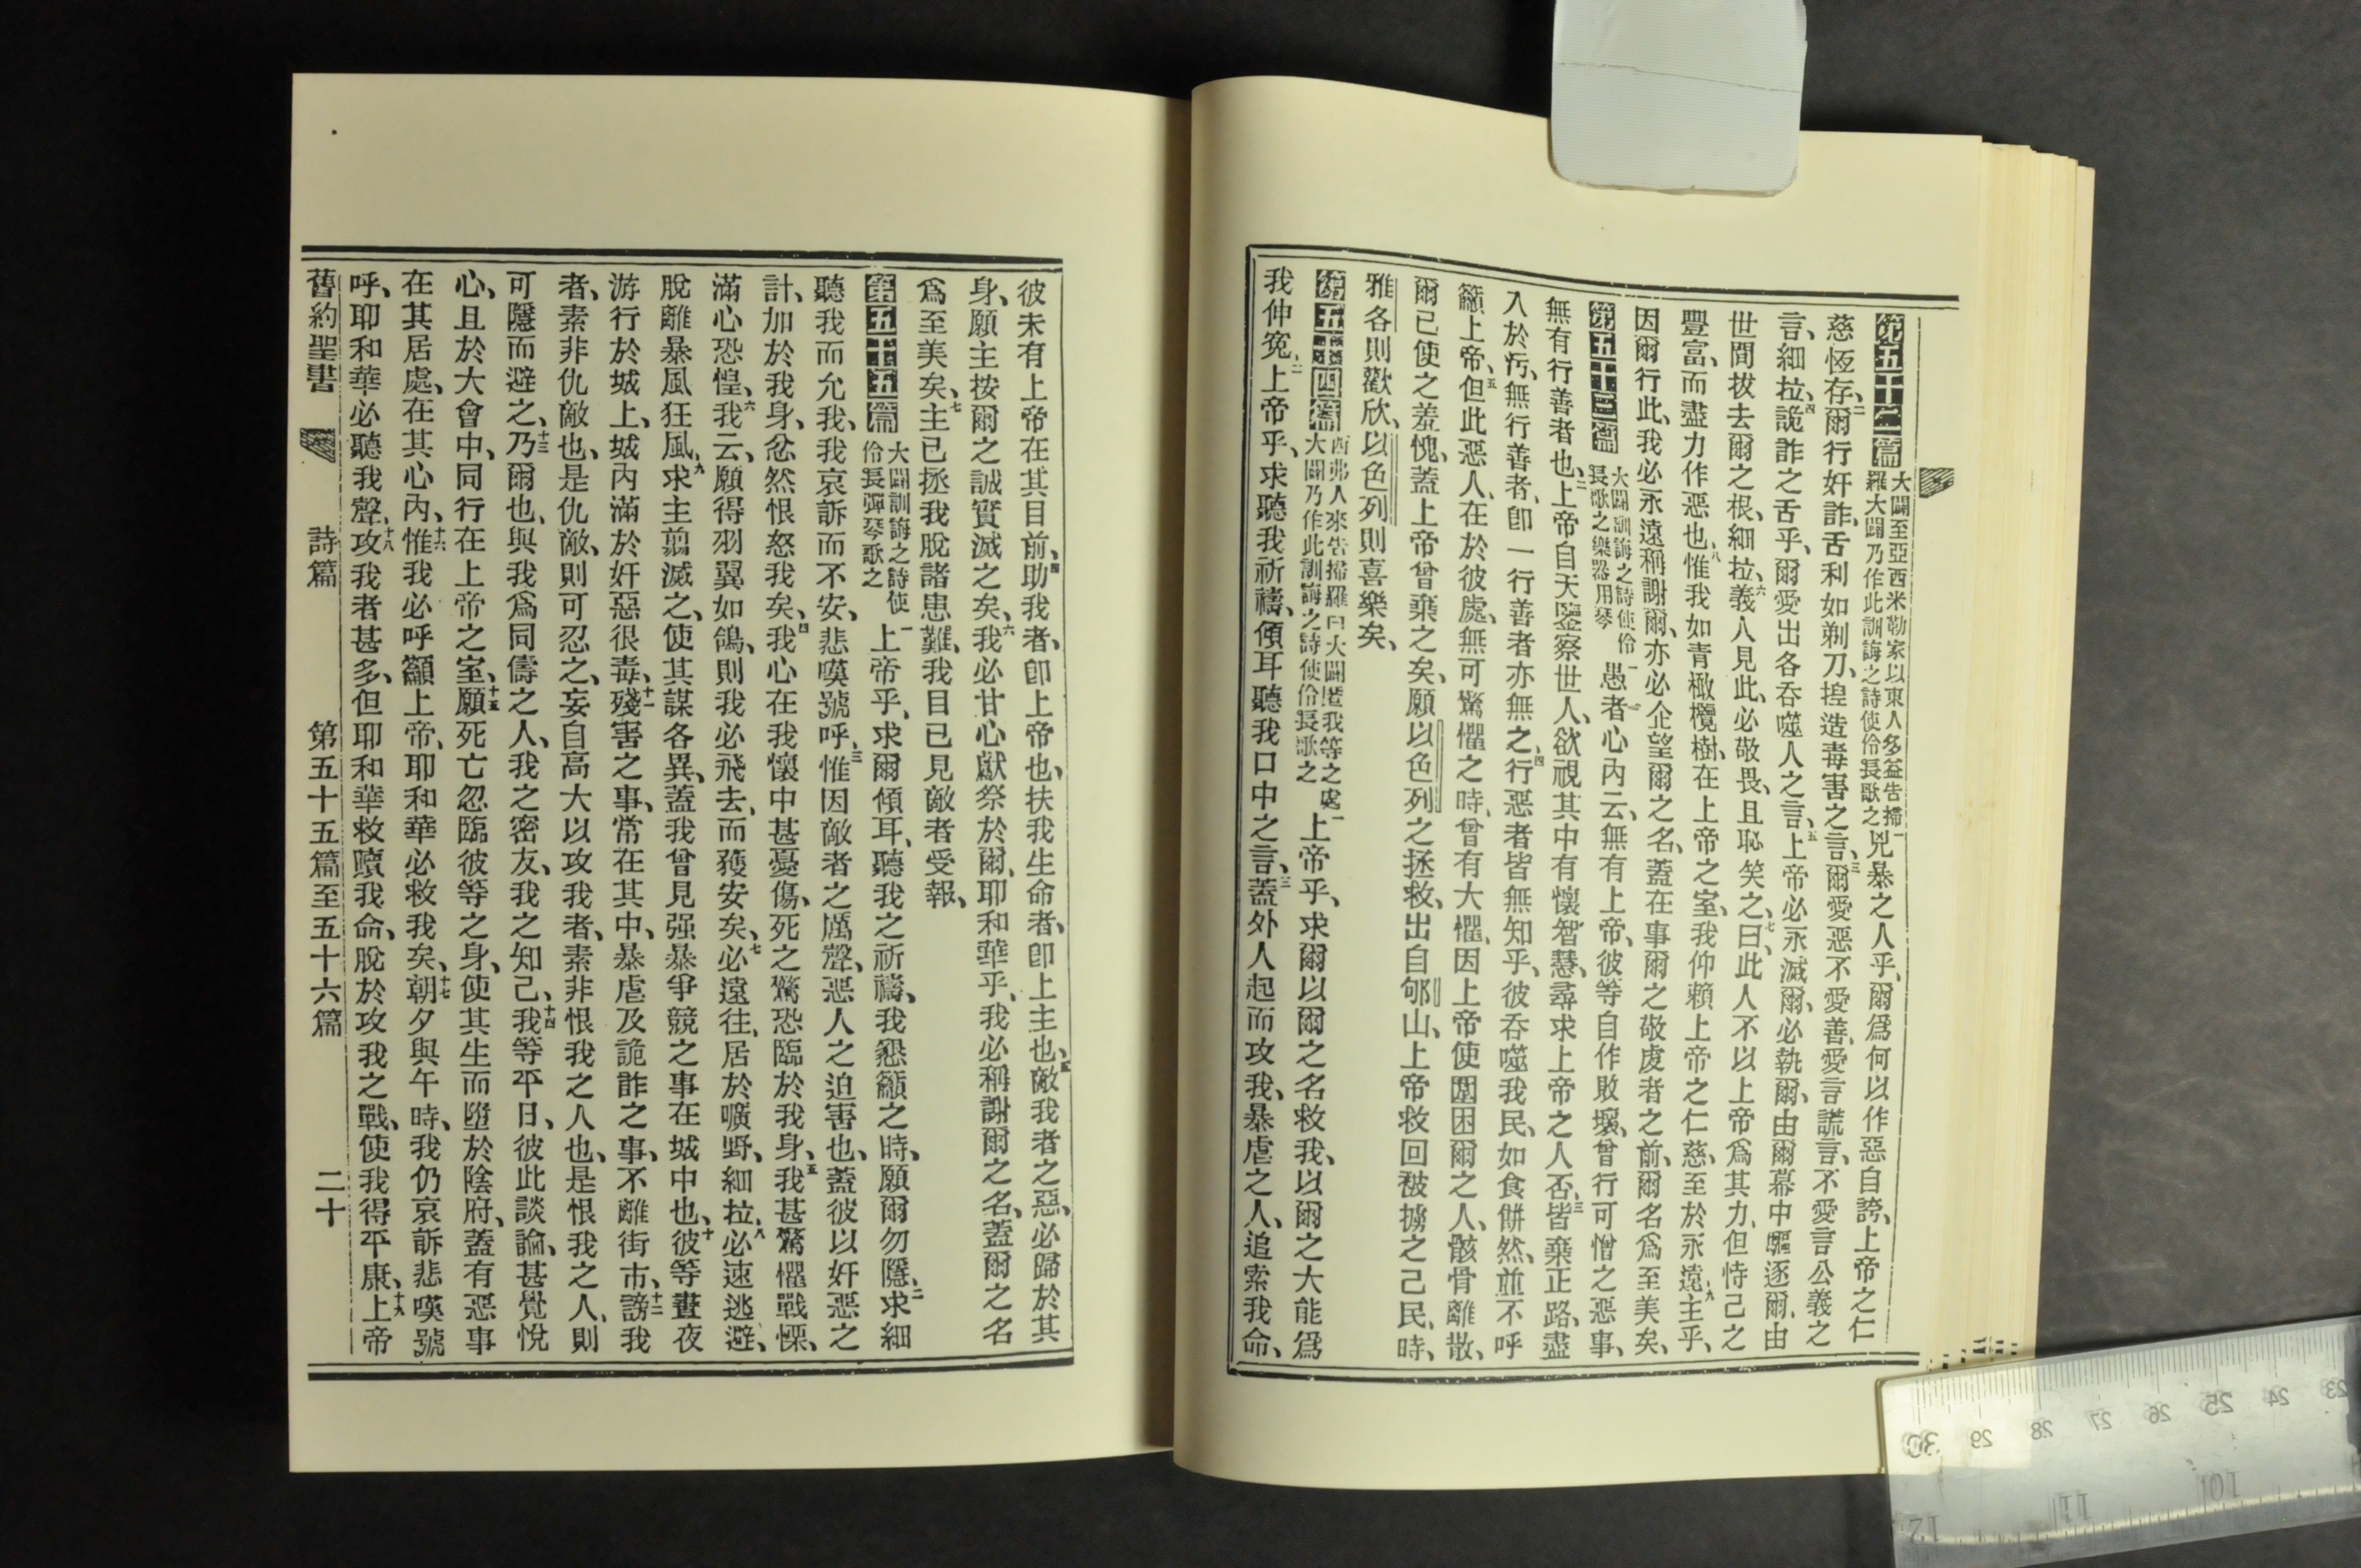 第五十二篇 大闢至亞西米勒家以東人多益告掃羅大闢乃作此訓誨之詩使伶長歌之 一兇暴之人乎、爾爲何以作惡自誇、上帝之仁
慈恆存、二爾行奸詐、舌利如剃刀、揑造毒害之言、三爾愛惡不愛善、愛言謊言、不愛言公義之
言、細拉、四詭詐之舌乎、爾愛出各吞噬人之言、五上帝必永滅爾、必執爾、由爾幕中驅逐爾、由
世間拔去爾之根、細拉、六義人見此、必敬畏、且恥笑之、七曰、此人不以上帝爲其力、但恃己之
豐富、而盡力作惡也、八惟我如青橄欖樹、在上帝之室、我仰賴上帝之仁慈、至於永遠、九主乎、
因爾行此、我必永遠稱謝爾、亦必企望爾之名、蓋在事爾之敬虔者之前、爾名爲至美矣、
第五十三篇 大闢訓誨之詩使伶長歌之樂器用琴 一愚者心內云、無有上帝、彼等自作敗壞、曾行可憎之惡事、
無有行善者也、二上帝自天鑒察世人、欲視其中有懷智慧、尋求上帝之人否、三皆棄正路、盡
入於汚、無行善者、卽一行善者亦無之、四行惡者皆無知乎、彼吞噬我民、如食餅然、並不呼
籲上帝、五但此惡人、在於彼處、無可驚懼之時、曾有大懼、因上帝使圍困爾之人、骸骨離散、
爾已使之羞愧、蓋上帝曾棄之矣、願以色列之拯救、出自郇山、上帝救回被擄之己民、時、
雅各則歡欣、以色列則喜樂矣、
第五十四篇 西弗人來告掃羅曰大闢匿我等之處大闢乃作此訓誨之詩使伶長歌之 一上帝乎、求爾以爾之名救我、以爾之大能爲
我伸冤、二上帝乎、求聽我祈禱、傾耳聽我口中之言、三蓋外人起而攻我、暴虐之人、追索我命、
彼未有上帝在其目前、四助我者、卽上帝也、扶我生命者、卽上主也、五敵我者之惡、必歸於其
身、願主按爾之誠實滅之矣、六我必甘心獻祭於爾、耶和華乎、我必稱謝爾之名、蓋爾之名
爲至美矣、七主已拯我脫諸患難、我目已見敵者受報、
第五十五篇 大闢訓誨之詩使伶長彈琴歌之 一上帝乎、求爾傾耳、聽我之祈禱、我懇籲之時、願爾勿隱、二求細
聽我而允我、我哀訴而不安、悲嘆號呼、三惟因敵者之厲聲、惡人之迫害也、蓋彼以奸惡之
計、加於我身、忿然恨怒我矣、四我心在我懷中甚憂傷、死之驚恐臨於我身、五我甚驚懼戰慄、
滿心恐惶、六我云、願得羽翼如鴿、則我必飛去、而獲安矣、七必遠往、居於曠野、細拉、八必速逃避、
脫離暴風狂風、九求主翦滅之、使其謀各異、蓋我曾見强暴爭競之事在城中也、十彼等晝夜
游行於城上、城內滿於奸惡很毒、十一殘害之事、常在其中、暴虐及詭詐之事、不離街市、十二謗我
者、素非仇敵也、是仇敵、則可忍之、妄自高大以攻我者、素非恨我之人也、是恨我之人、則
可隱而避之、十三乃爾也、與我爲同儔之人、我之密友、我之知己、十四我等平日、彼此談論、甚覺悅
心、且於大會中、同行在上帝之室、十五願死亡忽臨彼等之身、使其生而墮於陰府、蓋有惡事
在其居處、在其心內、十六惟我必呼籲上帝、耶和華必救我矣、十七朝夕與午時、我仍哀訴悲嘆號
呼、耶和華必聽我聲、十八攻我者甚多、但耶和華救贖我命、脫於攻我之戰、使我得平康、十九上帝
舊約聖書 詩篇 第五十五篇至五十六篇 二十
23 24 25 26 27 28 29 30
10 11 12